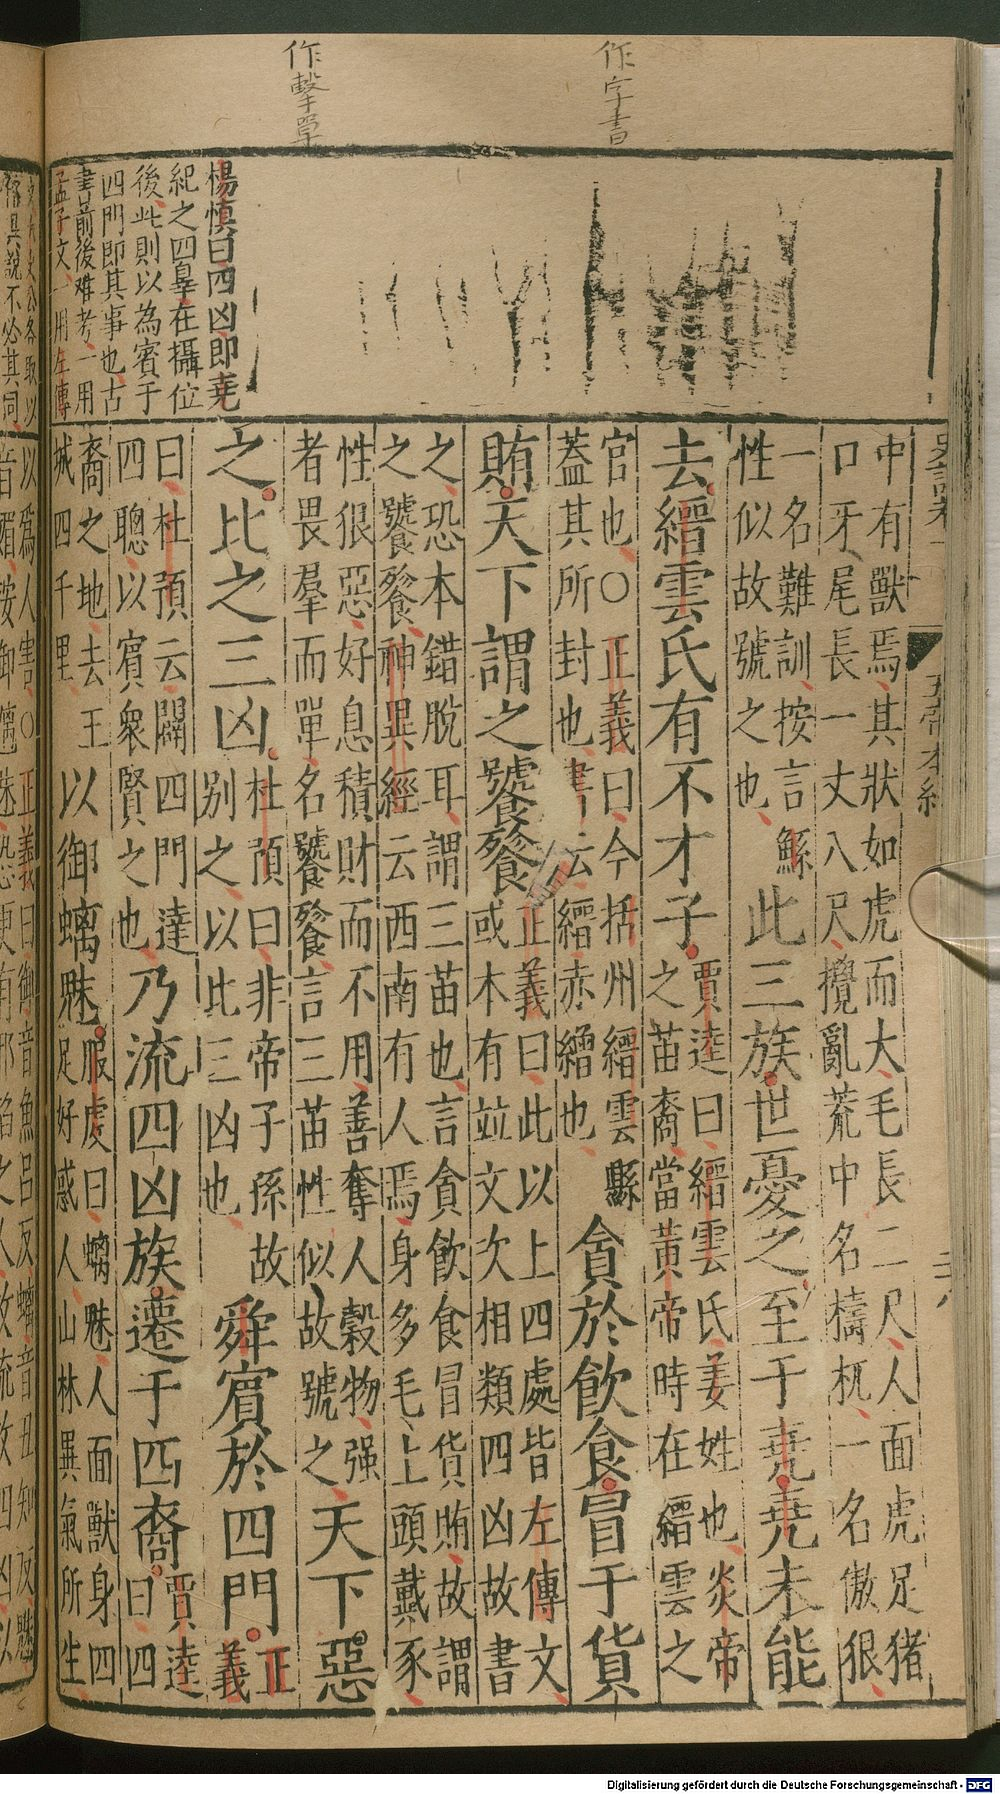 作字書
作擊單
楊慎曰四凶即堯
紀之四辠在攝位
後此則以為賓于
四門即其事也古
書前後难考一用
孟子文一用左傳
五帝本紀
中有獸焉其狀如虎而大毛長二尺人面虎足猪
口牙尾長一丈八尺攪亂荒中名檮杌一名傲狠
一名難訓按言鯀
性似故號之也
此三族世憂之至于堯堯未能
去縉雲氏有不才子
賈逵曰縉雲氏姜姓也炎帝
之苗裔當黃帝時在縉雲之
官也○正義曰今括州縉雲縣
蓋其所封也書云縉赤繒也
貪於飲食冒于貨
賄天下謂之饕餮
正義曰此以上四處皆左傳文
或本有並文次相類四凶故書
之恐本錯脫耳謂三苗也言貪飲食冒貨賄故謂
之饕餮神異經云西南有人焉身多毛上頭戴豕
性很惡好息積財而不用善奪人穀物强
者畏羣而單名饕餮言三苗性似故號之
天下惡
之比之三凶
杜預曰非帝子孫故
別之以比三凶也
舜賓於四門
正
義
曰杜預云闢四門達
四聰以賓衆賢之也
乃流四凶族遷于四裔
賈逵
曰四
裔之地去王
城四千里
以御螭魅
服虔曰螭魅人面獸身四
足好惑人山林異氣所生
以為人害○正義曰御音魚呂反螭音丑知反魅
Digitalisierung gefördert durch die Deutsche Forschungsgemeinschaft - DFG